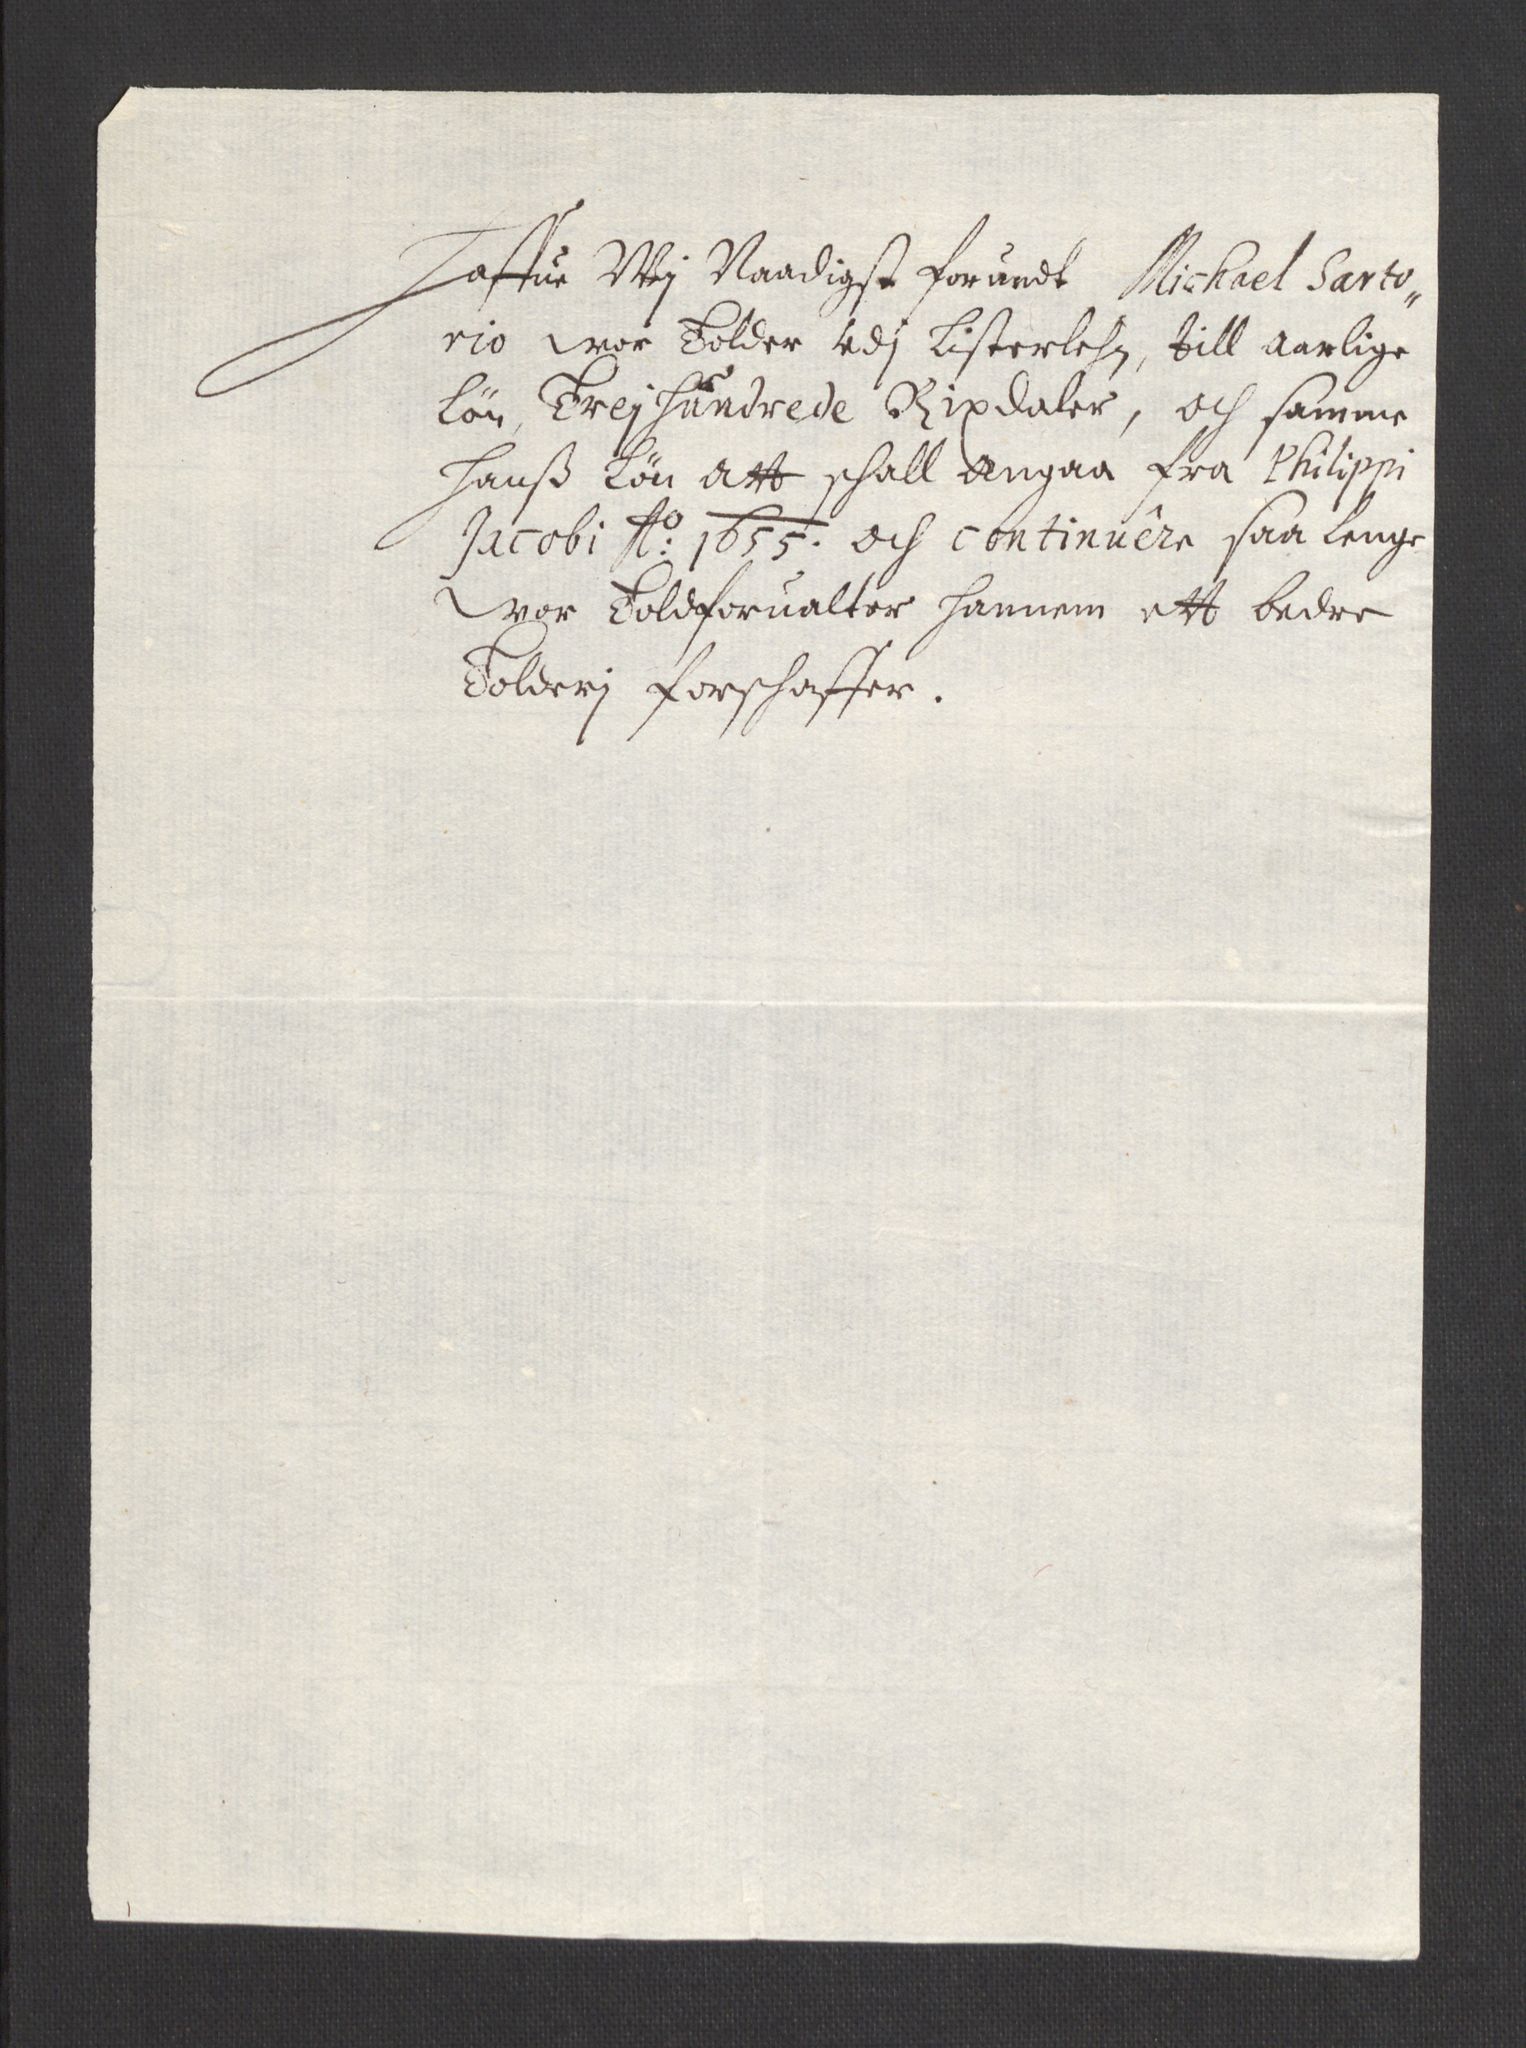 Haffue Wij Naadigst forundt Michael Sarto„
rio wor Tolder udj Listerlehn, till Aarlige
Løn, Trej hundrede Rixdaler, och samme
hanß Løn att schall angaa fra Philippi
Jacobi Ao: 1655. och continuêre saa lenge
wor Toldforualter hannem ett bedre
Tolderj forschaffer.